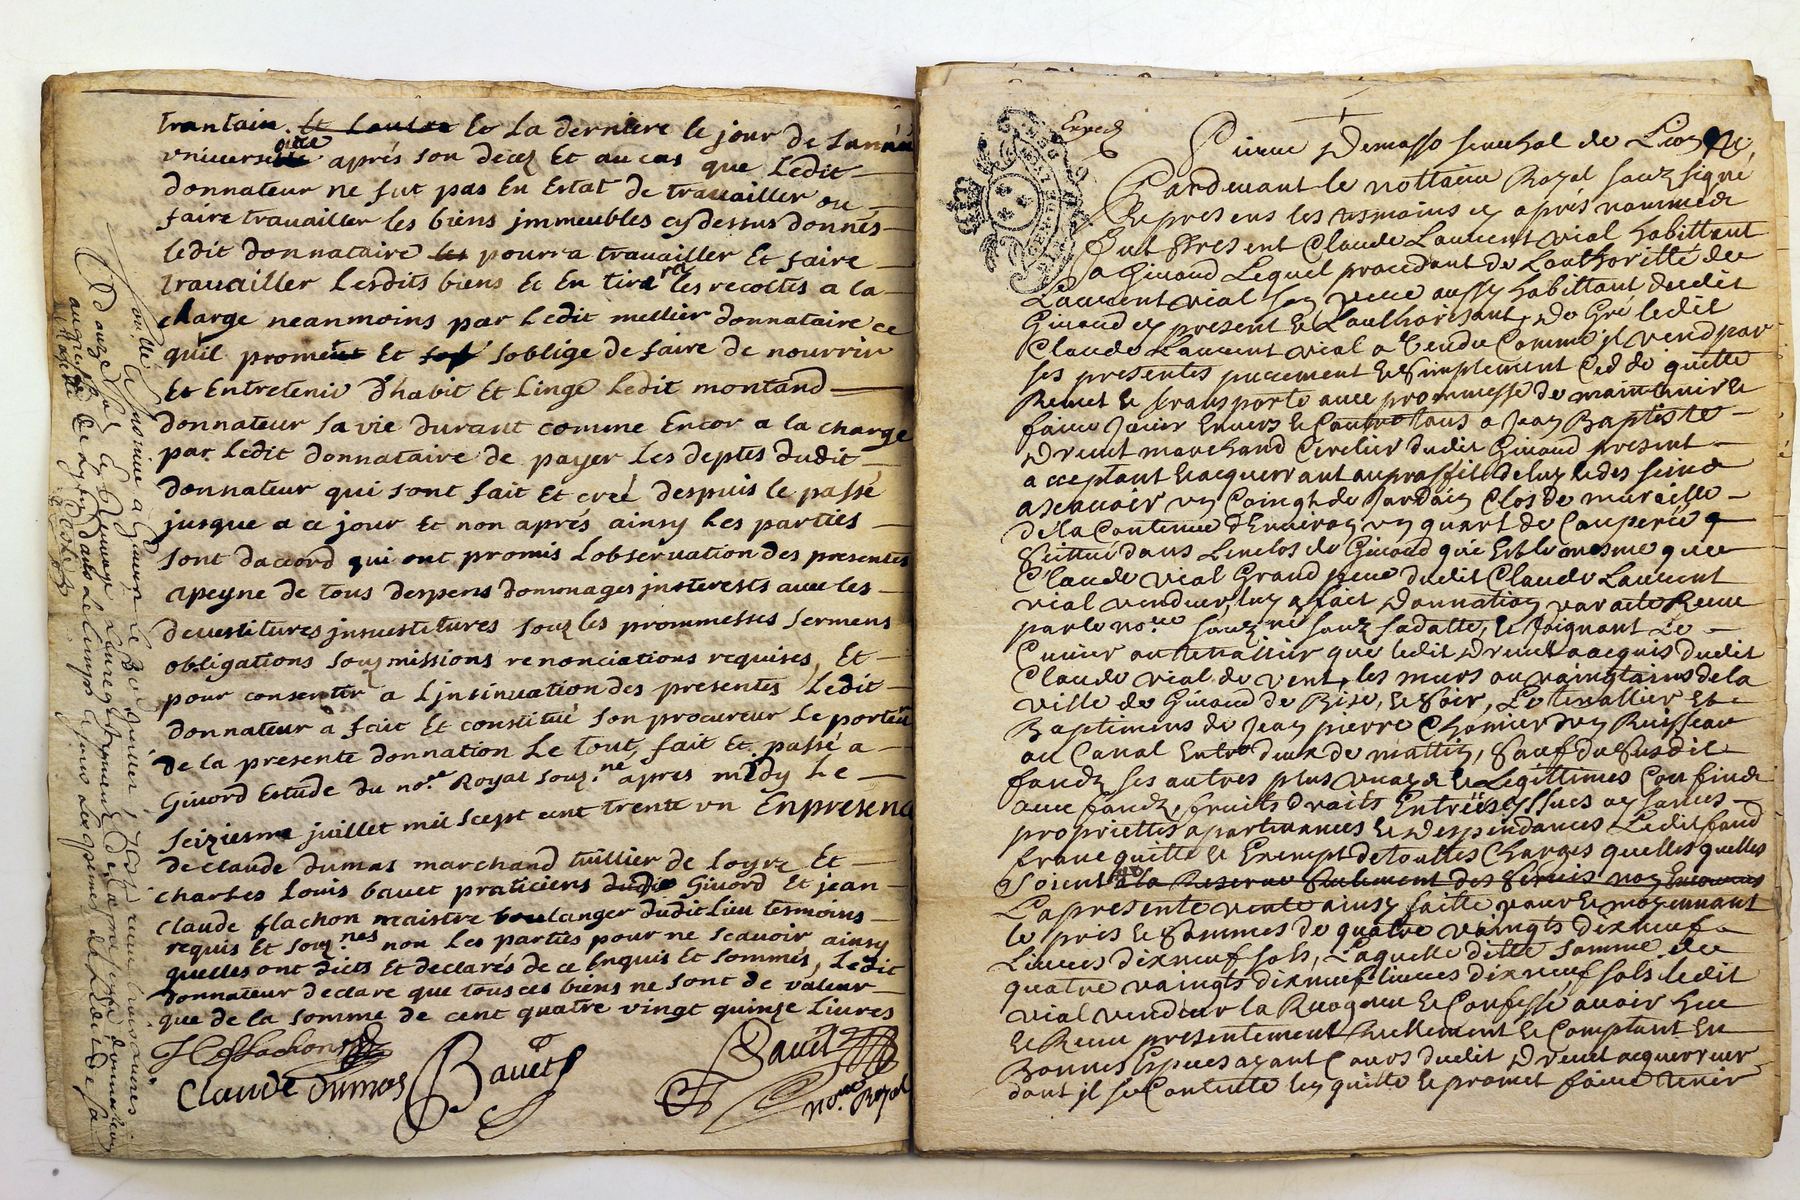 trantain. et lautre et la derniere le jour de lanné
vniverselle après son decez Et au cas que Ledit
donnateur ne fut pas En Estat de travailler ou
faire travailler les biens jmmeubles cy dessus donnés
ledit donnataire les pourra travailler Et faire
travailler Lesdits biens Et En tirer les recoltes a la
charge neanmoins par Ledit mellier donnataire ce
quil promet Et soblige de faire de nourrir
Et Entretenir Dhabit Et Linge Ledit montand
donnateur sa vie durant comme Encor a la charge
par Ledit donnataire de payer Les deptes dudit
donnateur qui sont fait Et creé despuis le passé
jusque a ce jour Et non aprés ainsy Les parties
sont daccord qui ont promis Lobservation des presentes
apeyne de tous despens dommages jnsterests avec les
devestitures jnvestitures souz les prommesses sermens
obligations sousmissions renonciations requises, Et
pour consentir a Ljnsinuation des presentes Ledit
donnateur a fait Et constitué son procureur Le porteur
de la presente donnation Le tout fait Et passé a
Givord Estude du no.re Royal souz.né apres midy Le
seiziesme juillet mil sept cent trente vn En presence
de claude dumas marchand tuillier de Loyre Et
charles Louis bavet praticiens dudit Givord Et jean
claude flachon maistre boulanger dudit Lieu tesmoins
requis Et souz.nes non Les parties pour ne scavoir ainsy
quelles ont dicts Et declarés de ce Enquis Et sommés, Ledit
donnateur declare que tous ces biens ne sont de valeur
que de la somme de cent quatre vingt quinze Livres
Flachon
Claude Dumas
Bavet
Bavet
no.re Royal
Pierre Demasso senechal de Lion
Pardevant le nottaire Royal souz signé
Et presens les tesmoins cy après nommés
fut Present Claude Laurent vial habittant
a Givord Lequel procedant de Lauthoritté de
Laurent vial son Pere aussy habittant dudit
Givord cy present Et Lauthorisant, De Gré ledit
Claude Laurent vial a Vendu Comme jl vend par
ses presentes purement Et simplement Cedde quitte
Remet Et transporte avec prommesse de maintenir Et
faire Jouir Envers Et Contre tous a Jean Baptiste
Drevet marchand Cerclier dudit Givord present
acceptant Et acquerrant au proffit de luy Et des siens
ascavoir vn Coingt de Jardain Clos de muraille
de la Contenue d'Environ vn quart de Couperée
scittué dans Lenclos de Givord qui Est le mesme que
Claude vial Grand pere dudit Claude Laurent
vial vendeur luy a fait Donnation par acte Receu
par le no.re souz né souz sa datte, Et Joignant Le
Cuvier ou tenallier que ledit Drevet a acquis dudit
Claude vial de vent, les murs ou vaingtains de la
ville de Givord de Bize, Et soir, Le tenallier Et
Baptimens de Jean pierre Chomier vn Ruisseau
ou Canal Entre deux de mattin, sauf du susdit
fondz ses autres plus vrays Et Legittimes Confins
avec fondz fruits Droits Entrées yssues aysances
propriettés apartenances Et Despendances Ledit fond
franc quitte Et Exempt de touttes Charges quelles quelles
soient a la Reserve seulement des servis
La presente vente ainsy faitte pour Et moyennant
le prix Et sommes de quatre vaingts dixneuf
Livres dixneuf sols, Laquelle ditte somme de
quatre vaingts dixneuf livres dixneuf sols ledit
vial vendeur la Recogneu Et Confessé avoir heu
Et Receu presentement Reellement Et Comptant En
Bonnes Especes ayant Cours dudit Drevet acquerreur
dont jl se Contente len quitte Et promet faire tenir